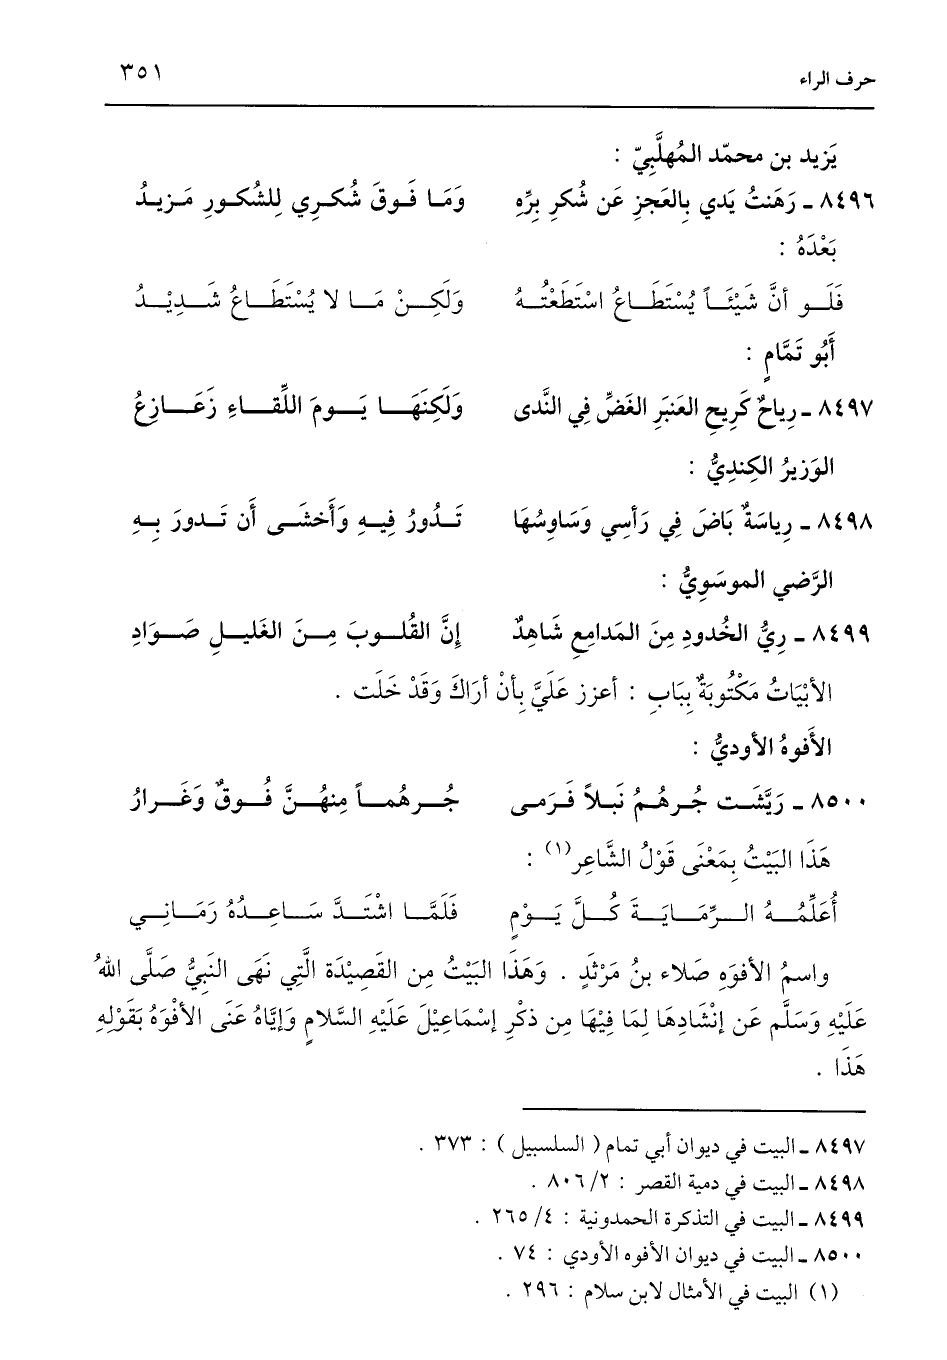 حرف الراء ٣٥١
يَزيد بن محمّد المُهلَّبيّ :
٨٤٩٦ ـ رَهَنتُ يَدي بِالعَجزِ عَن شُكرِ بِرِّهِ وَمَا فَوقَ شُكري لِلشُكورِ مَزيدُ
بَعْدَهُ :
فَلَو أنَّ شَيْئَاً يُسْتَطَاعُ اسْتَطَعْتُهُ وَلَكِنْ مَا لا يُسْتَطَاعُ شَدِيْدُ
أَبُو تَمَّامٍ :
٨٤٩٧ ـ رِياحٌ كَرِيحِ العَنبَرِ الغَضِّ فِي النَّدى وَلَكِنَهَا يَومَ اللِّقاءِ زَعَازِعُ
الوَزيرُ الكِندِيُّ :
٨٤٩٨ ـ رِياسَةٌ بَاضَ فِي رَأسِي وَسَاوِسُهَا تَدُورُ فِيهِ وَأَخشَى أَن تَدورَ بِهِ
الرَّضي الموسَوِيُّ :
٨٤٩٩ ـ رِيُّ الخُدودِ مِنَ المَدامِعِ شَاهِدٌ إنَّ القُلوبَ مِنَ الغَليلِ صَوَادِ
الأبْيَاتُ مَكْتُوبَةٌ بِبَابِ : أعزز عَلَيَّ بِأنْ أرَاكَ وَقَدْ خَلَت .
الأَفوهُ الأوديُّ :
٨٥٠٠ ـ رَيَّشَت جُرهُمُ نَبلاً فَرَمى جُرهُماً مِنهُنَّ فُوقٌ وَغَرارُ
هَذَا البَيْتُ بِمَعْنَى قَوْلُ الشَّاعِرِ(١) :
أُعَلِّمُهُ الرِّمَايَةَ كُلَّ يَوْمٍ فَلَمَّا اشْتَدَّ سَاعِدُهُ رَمَانِي
واسمُ الأفوَهِ صَلاء بنُ مَرْثَدٍ . وَهَذَا البَيْتُ مِن القَصِيْدَة الَّتِي نَهَى النَبيُّ صَلَّى اللهُ
عَلَيْهِ وَسَلَّم عَن إنْشَادِهَا لِمَا فِيْهَا مِن ذكْرِ إسْمَاعِيْلَ عَلَيْهِ السَّلامِ وَإيَّاهُ عَنَى الأفْوَهُ بَقَوْلِهِ
هَذَا .
٨٤٩٧ ـ البيت في ديوان أبي تمام ( السلسبيل ) : ٣٧٣ .
٨٤٩٨ ـ البيت في دمية القصر : ٢/ ٨٠٦ .
٨٤٩٩ ـ البيت في التذكرة الحمدونية : ٤/ ٢٦٥ .
٨٥٠٠ ـ البيت في ديوان الأفوه الأودي : ٧٤ .
(١) البيت في الأمثال لابن سلام : ٢٩٦ .